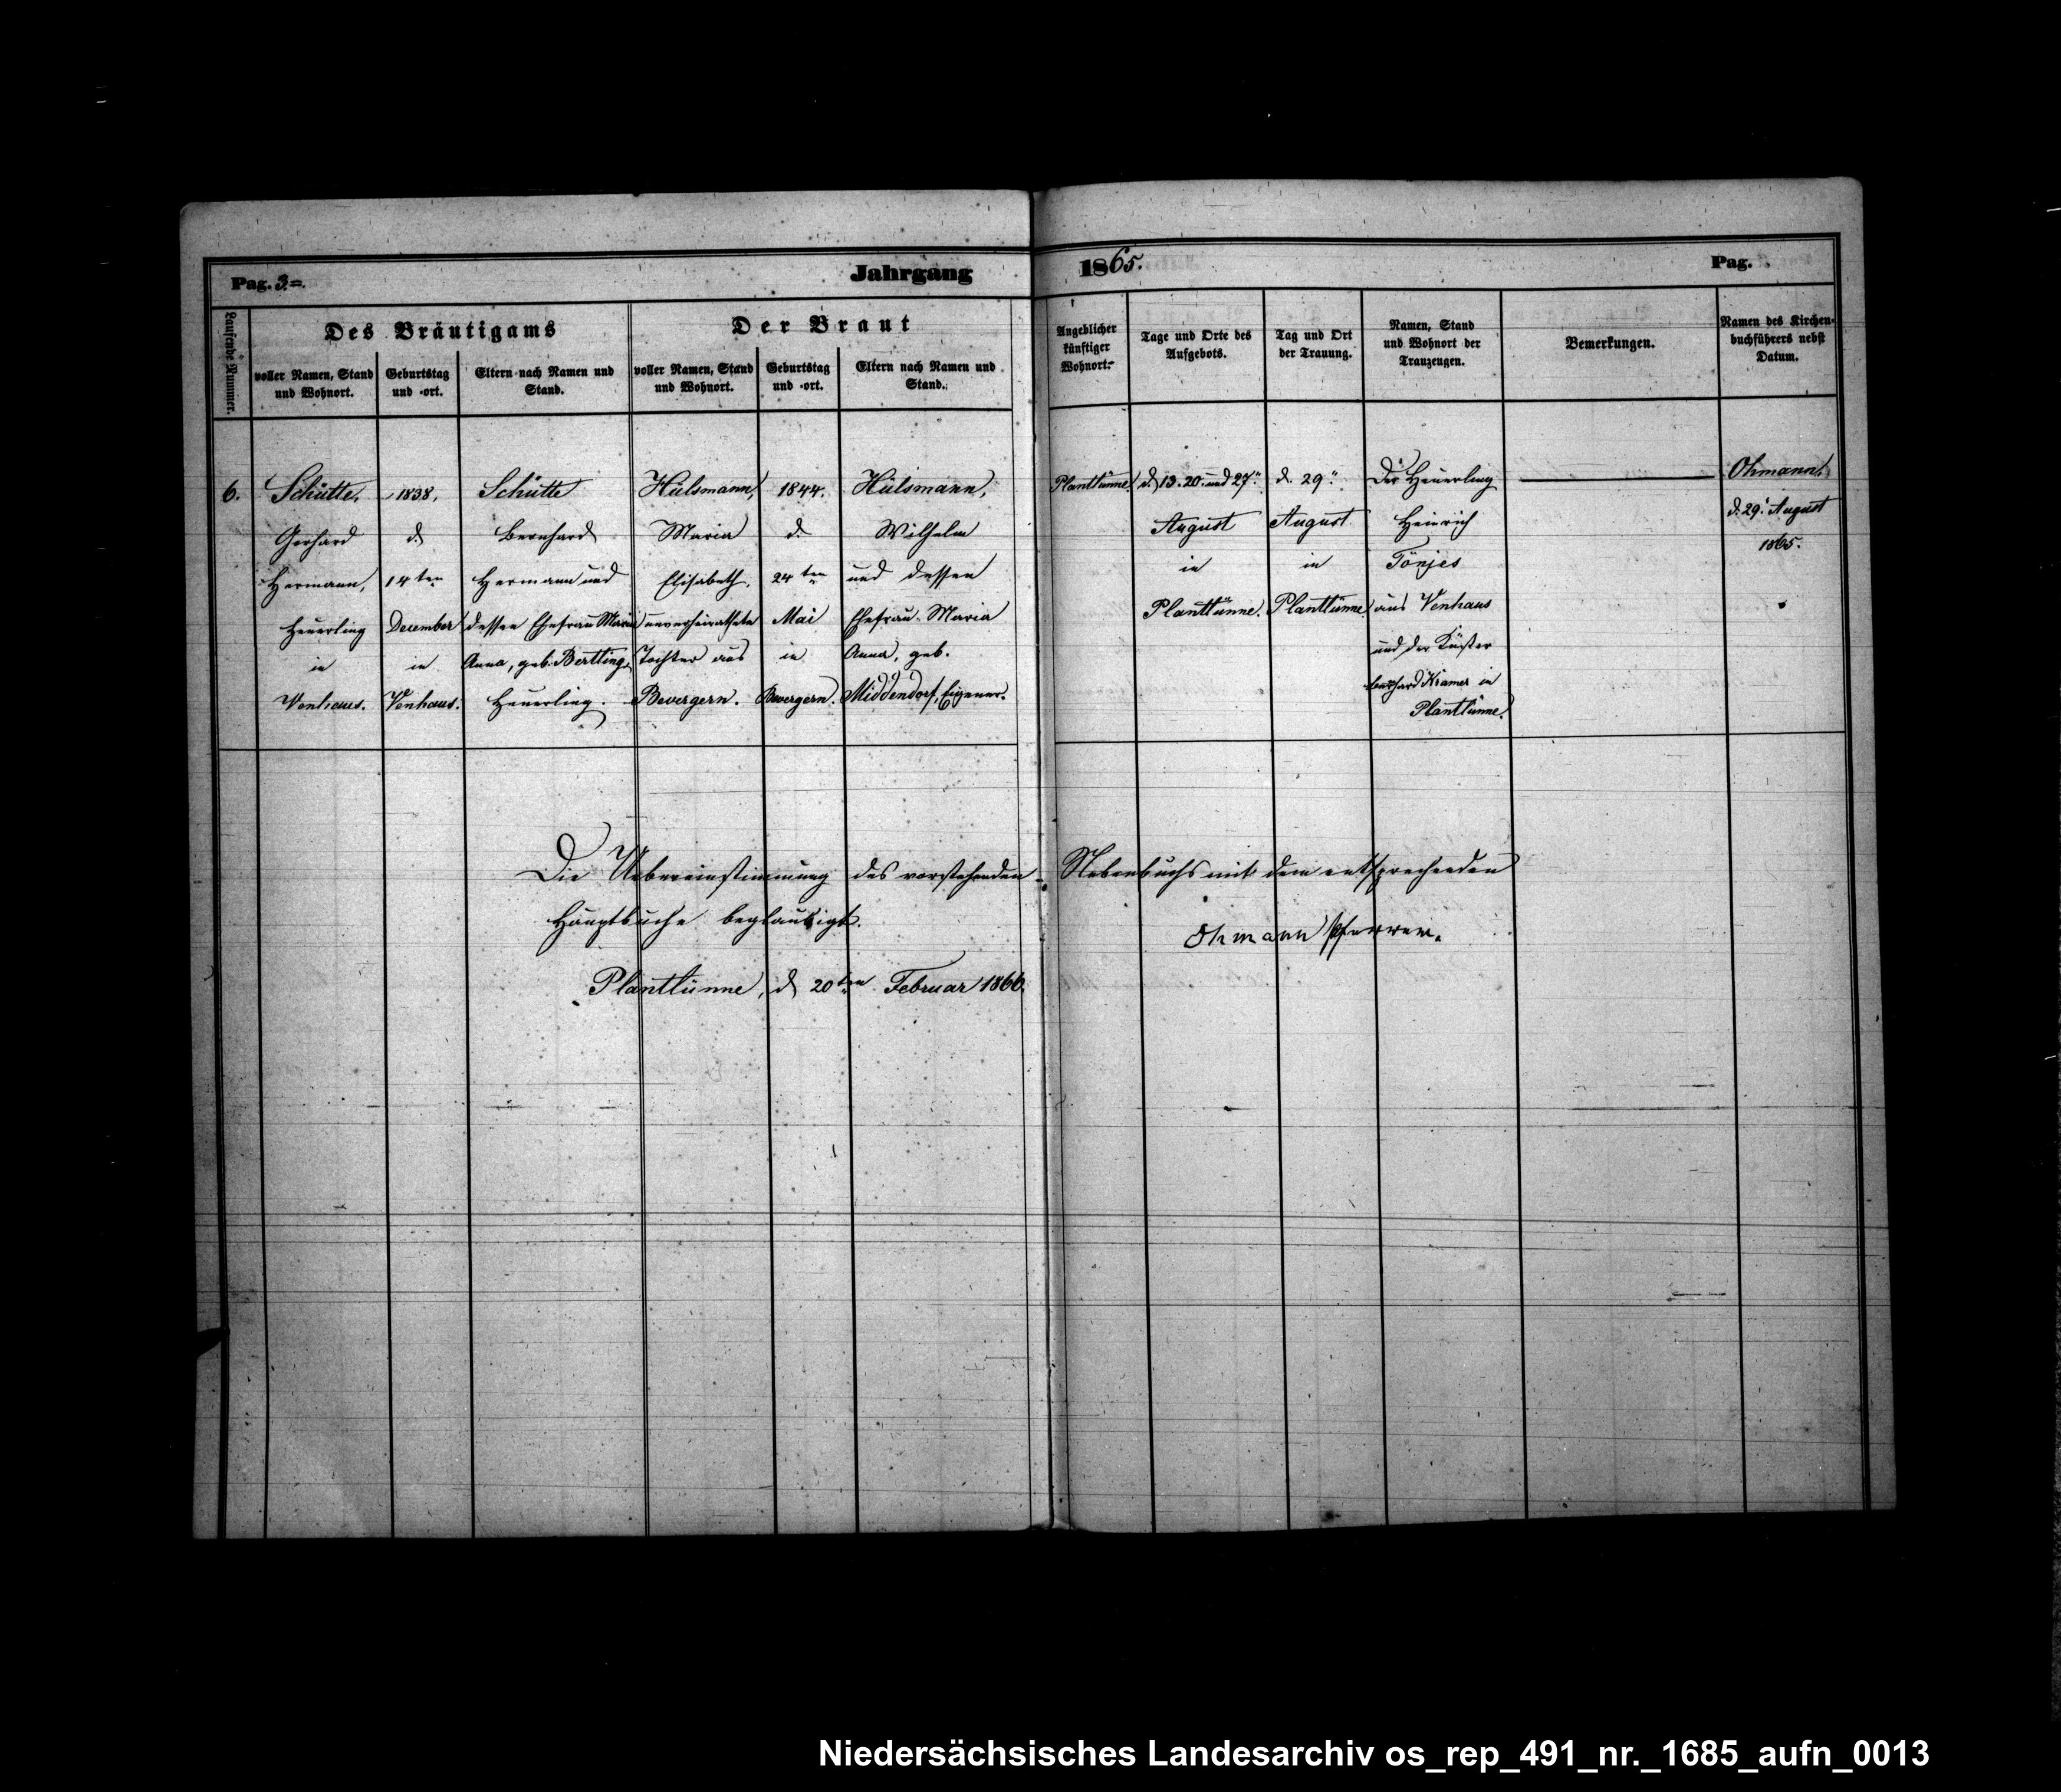 Pag. 3.=
Jahrgang 1865.
Pag.
Laufende Nummer.
Des Bräutigams
voller Namen, Stand
und Wohnort.
Geburtstag
und -ort.
Eltern nach Namen und
Stand.
Der Braut
voller Namen, Stand
und Wohnort.
Geburtstag
und -ort.
Eltern nach Namen und
Stand.
Angeblicher
künftiger
Wohnort.
Tage und Orte des
Aufgebots.
Tag und Ort
der Trauung.
Namen, Stand
und Wohnort der
Trauzeugen.
Bemerkungen.
Namen des Kirchen-
buchführers nebst
Datum.
6.
Schütte,
Gerhard
Hermann,
Heuerling
in
Venhaus.
1838,
d.
14ten
December
in
Venhaus.
Schütte
Bernhard
Hermann und
dessen Ehefrau Maria
Anna, geb. Bertling,
Heuerling.
Hülsmann,
Maria
Elisabeth,
unverheirathete
Tochter aus
Bevergern.
1844.
d.
24ten
Mai
in
Bevergern.
Hülsmann,
Wilhelm
und dessen
Ehefrau Maria
Anna, geb.
Middendorf, Eigener.
Plantlünne.
d. 13. 20. und 27.
August
in
Plantlünne.
d. 29.
August
in
Plantlünne.
Der Heuerling
Heinrich
Tönjes
aus Venhaus
und der Küster
Bernhard Kramer in
Plantlünne.
Ohmann.
d. 29. August
1865.
Die Uebereinstimmung des vorstehenden Nebenbuchs mit dem entsprechenden
Hauptbuche beglaubigt.
Ohmann Pfarrer.
Plantlünne, d. 20ten Februar 1866.
Niedersächsisches Landesarchiv os_rep_491_nr._1685_aufn_0013